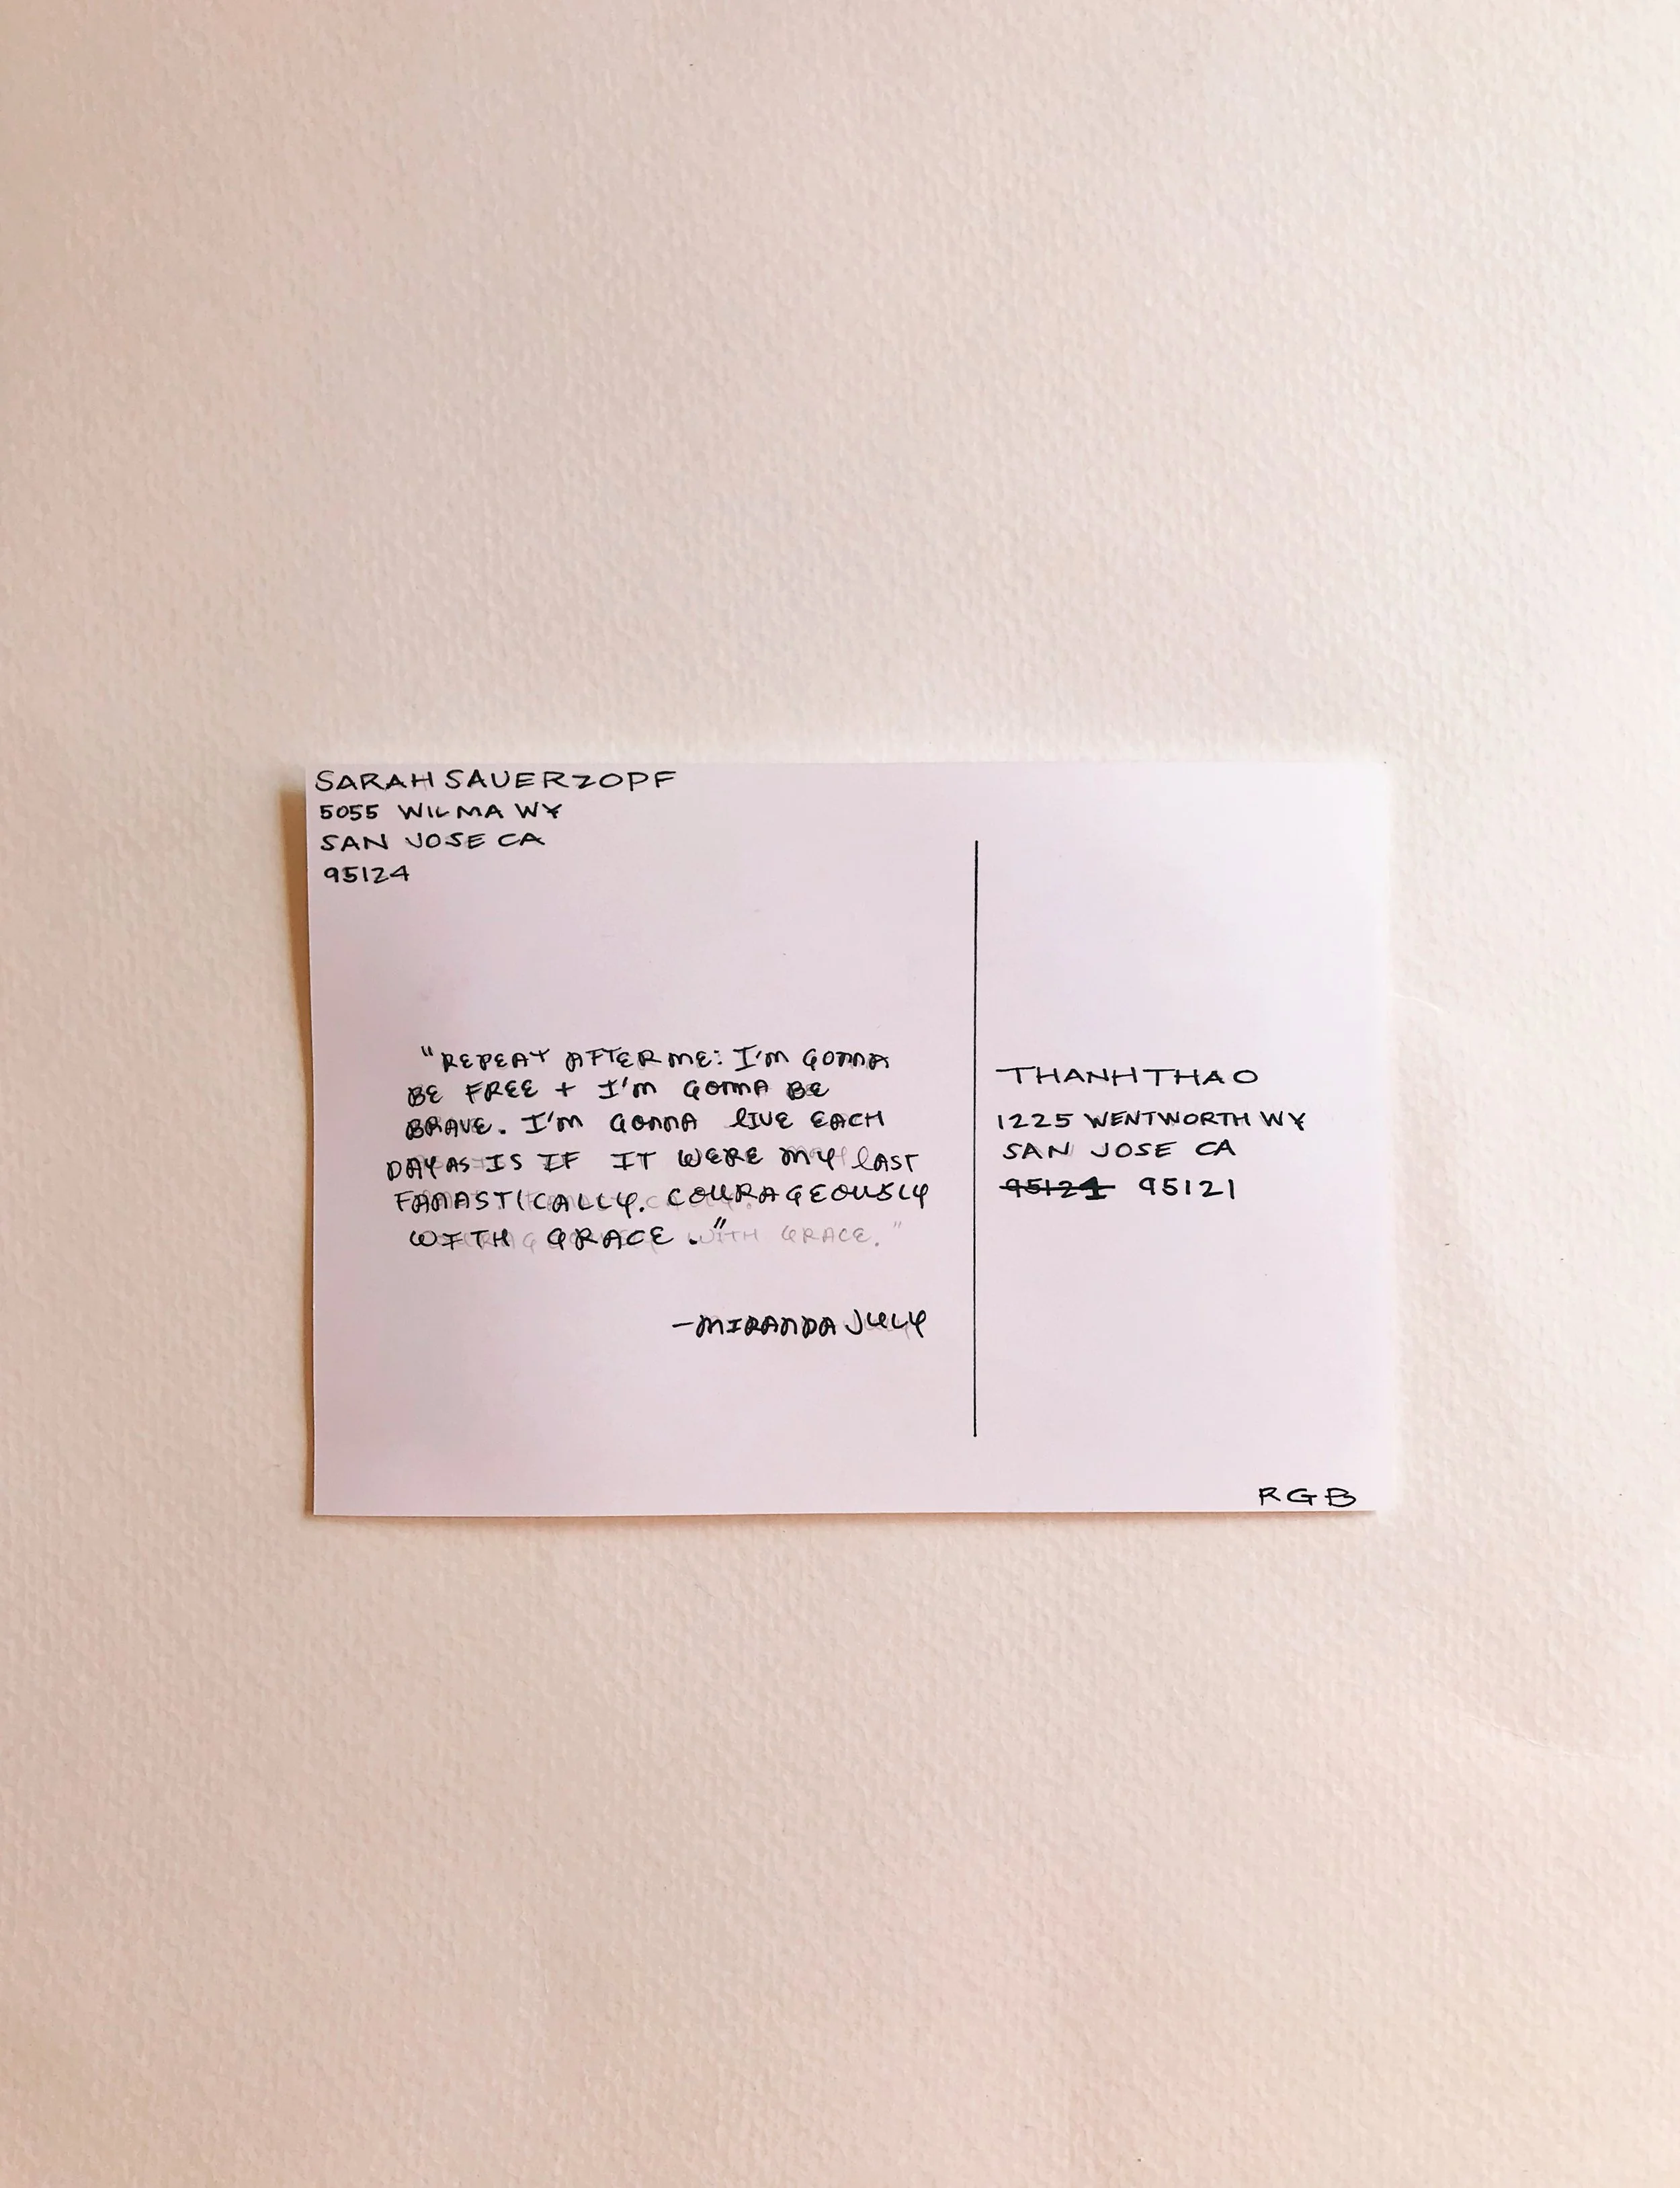 SARAH SAUERZOPF
5055 WILMA WY
SAN JOSE CA
95124
"REPEAT AFTER ME: I'M GONNA
BE FREE + I'M GONNA BE
BRAVE. I'M GONNA LIVE EACH
DAY AS IS IF IT WERE MY LAST
FANASTICALLY. COURAGEOUSLY
WITH GRACE." WITH GRACE."
—MIRANDA JULY
THANHTHAO
1225 WENTWORTH WY
SAN JOSE CA
95121 95121
RGB